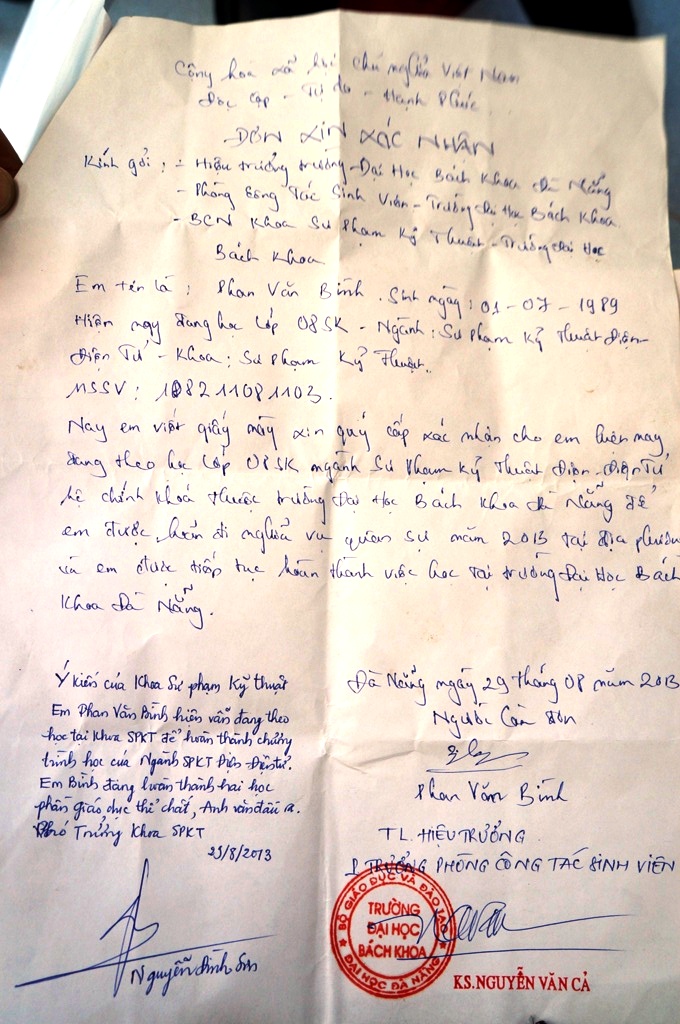 Cộng hoà xã hội chủ nghĩa Việt Nam
Độc lập - Tự do - Hạnh Phúc
ĐƠN XIN XÁC NHẬN
Kính gởi : - Hiệu trưởng trường Đại Học Bách Khoa Đà Nẵng
- Phòng Công Tác Sinh Viên - Trường Đại Học Bách Khoa
- BCN Khoa Sư Phạm Kỹ Thuật - Trường Đại Học
Bách Khoa
Em tên là : Phan Văn Bình . Sinh ngày : 01 - 07 - 1989
Hiện nay đang học lớp 08SK - Ngành : Sư Phạm Kỹ Thuật Điện -
Điện Tử - Khoa : Sư Phạm Kỹ Thuật.
MSSV : 10821108 1103.
Nay em viết giấy này xin quý cấp xác nhận cho em hiện nay
đang theo học lớp 08SK ngành Sư Phạm Kỹ Thuật Điện - Điện Tử
hệ chính khoá thuộc trường Đại Học Bách Khoa Đà Nẵng để
em được hoãn đi nghĩa vụ quân sự năm 2013 tại địa phương
và em được tiếp tục hoàn thành việc học tại trường Đại Học Bách
Khoa Đà Nẵng.
Ý kiến của Khoa Sư phạm Kỹ thuật
Em Phan Văn Bình hiện vẫn đang theo
học tại Khoa SPKT để hoàn thành chương
trình học của Ngành SPKT Điện - Điện tử.
Em Bình đang hoàn thành hai học
phần giáo dục thể chất, Anh văn đầu ra.
Phó Trưởng Khoa SPKT
29/8/2013
Nguyễn Đình Sơn
Đà Nẵng ngày 29 tháng 08 năm 2013
Người Làm đơn
Phan Văn Bình
TL. HIỆU TRƯỞNG
TRƯỞNG PHÒNG CÔNG TÁC SINH VIÊN
BỘ GIÁO DỤC VÀ ĐÀO TẠO
TRƯỜNG
ĐẠI HỌC
BÁCH KHOA
ĐẠI HỌC ĐÀ NẴNG
KS.NGUYỄN VĂN CẢ